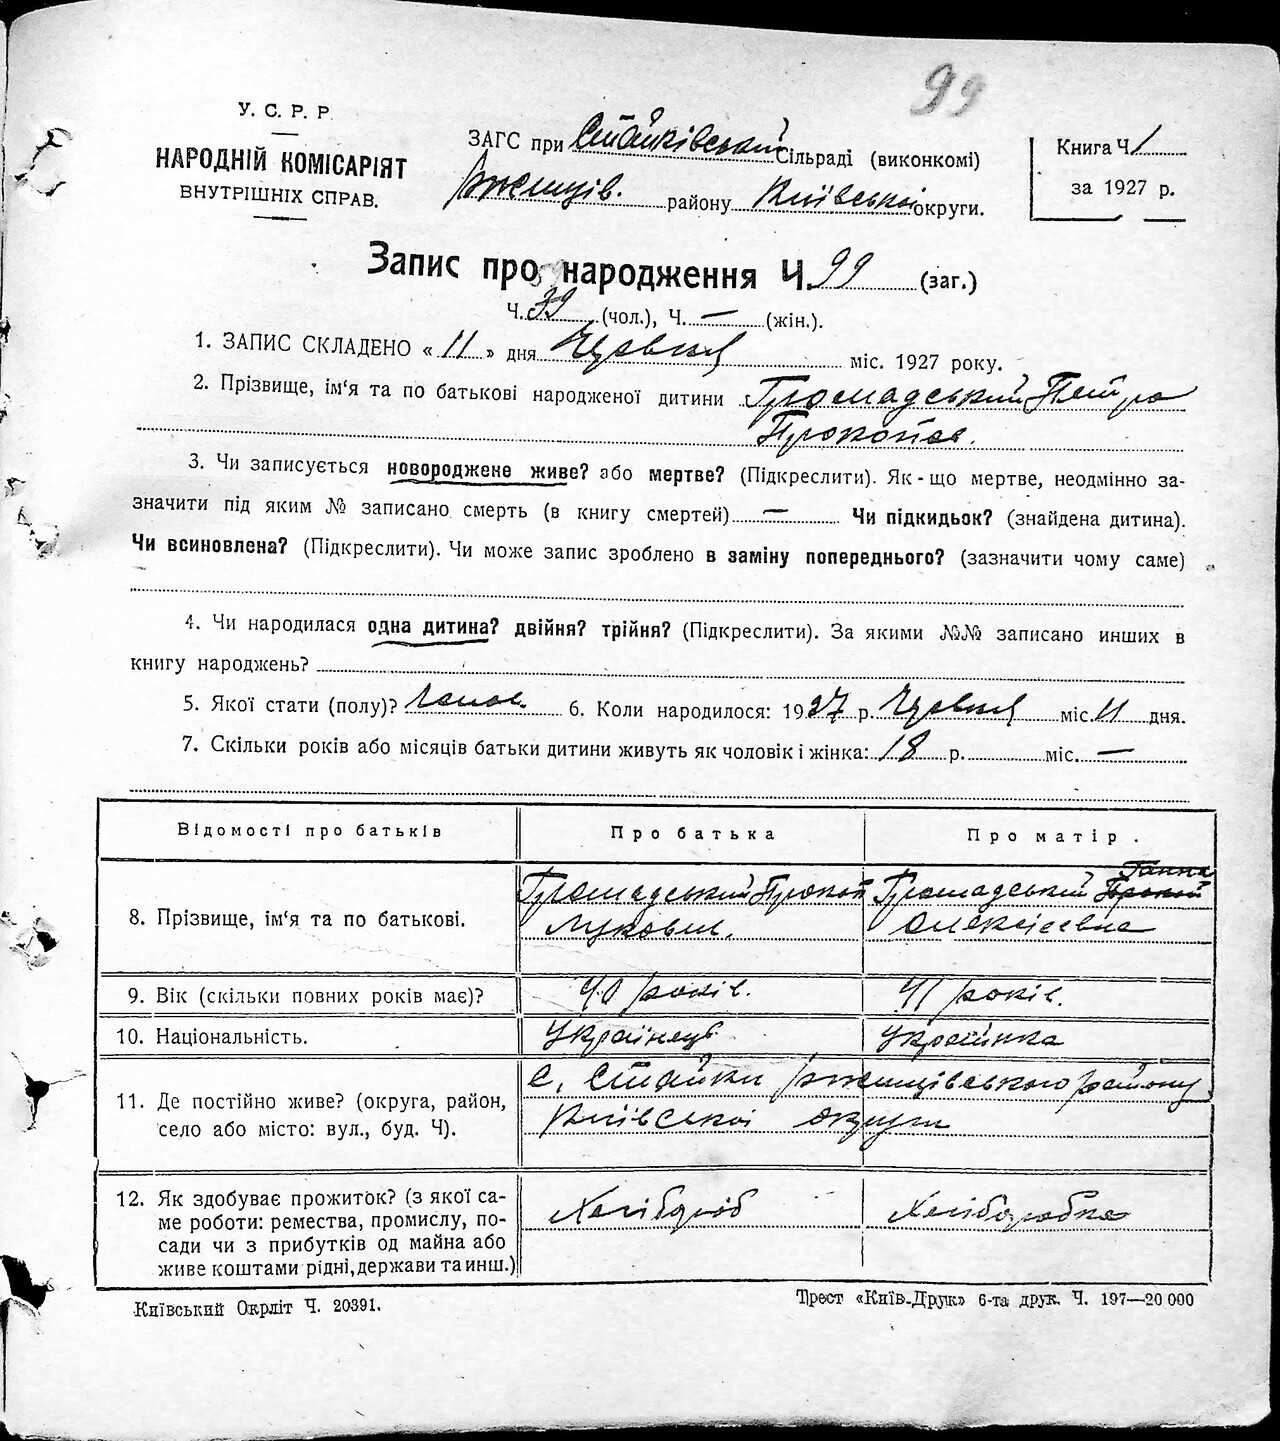 99
У. С. Р. Р.
НАРОДНІЙ КОМІСАРІЯТ
ВНУТРІШНІХ СПРАВ.
ЗАГС при Стайківський Сільраді (виконкомі)
Ржищів. району Київської округи.
Книга Ч 1
за 1927 р.
Запис про народження Ч. 99 (заг.)
Ч. 39 (чол.), Ч. — (жін.).
1. ЗАПИС СКЛАДЕНО « 11 » дня Червня міс. 1927 року.
2. Прізвище, ім‘я та по батькові народженої дитини Громадський Петро
Прокопов.
3. Чи записується новороджене живе? або мертве? (Підкреслити). Як-що мертве, неодмінно за-
значити під яким № записано смерть (в книгу смертей) — Чи підкидьок? (знайдена дитина).
Чи всиновлена? (Підкреслити). Чи може запис зроблено в заміну попереднього? (зазначити чому саме)
4. Чи народилася одна дитина? двійня? трійня? (Підкреслити). За якими №№ записано инших в
книгу народжень?
5. Якої стати (полу)? чолов. 6. Коли народилося: 1927 р. Червня міс. 11 дня.
7. Скільки років або місяців батьки дитини живуть як чоловік і жінка: 18 р. міс. —
Відомості про батьків Про батька Про матір.
Ганна
8. Прізвище, ім‘я та по батькові. Громадський Прокоп Громадський Прокоп
Лукович. Олексієвна
9. Вік (скільки повних років має)? 40 років. 41 років.
10. Національність. Українець Українка
11. Де постійно живе? (округа, район,
село або місто: вул., буд. Ч).
с. Стайки Ржищівського району
Київської округи
12. Як здобуває прожиток? (з якої са-
ме роботи: ремества, промислу, по-
сади чи з прибутків од майна або
живе коштами рідні, держави та инш.)
Хлібороб Хліборобка
Київський Окрліт Ч. 20391.
Трест «Київ-Друк» 6-та друк. Ч. 197—20 000